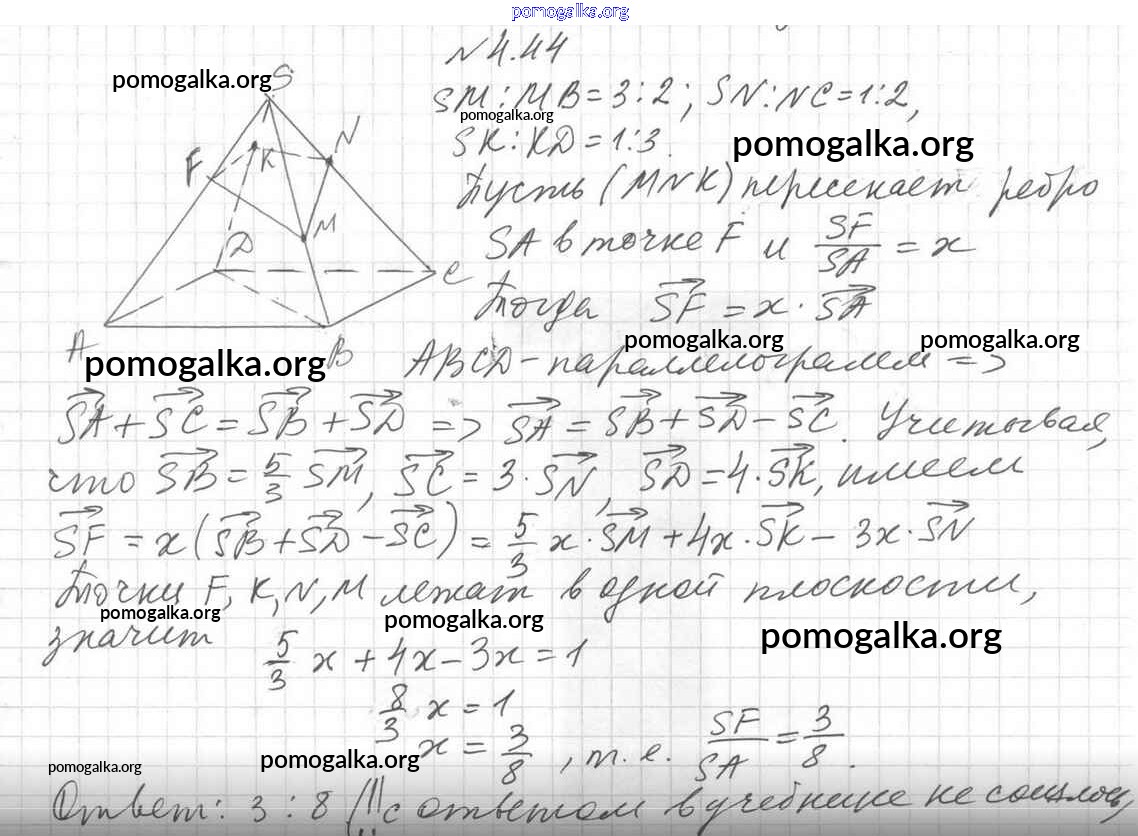 pomogalka.org
N 4.44
pomogalka.org
S
SM : MB = 3 : 2 ; SN : NC = 1 : 2,
pomogalka.org
SK : KD = 1 : 3.
pomogalka.org
N
F
K
Пусть (MNK) пересекает ребро
M
D
SA в точке F и SF/SA = x
C
Тогда SF = x · SA
pomogalka.org
pomogalka.org
A
B
pomogalka.org
ABCD - параллелограмм =>
SA + SC = SB + SD => SA = SB + SD - SC. Учитывая,
что SB = 5/3 SM, SC = 3 · SN, SD = 4 · SK, имеем
SF = x (SB + SD - SC) = 5/3 x · SM + 4x · SK - 3x · SN
Точки F, K, N, M лежат в одной плоскости,
pomogalka.org
pomogalka.org
pomogalka.org
значит
5/3 x + 4x - 3x = 1
8/3 x = 1
x = 3/8, т.е. SF/SA = 3/8.
pomogalka.org
pomogalka.org
Ответ: 3 : 8 (!! с ответом в учебнике не сошлось,